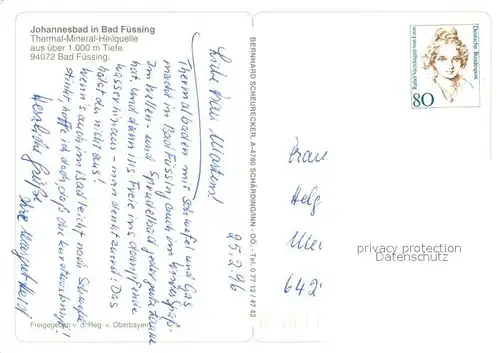 Johannesbad in Bad Füssing
Thermal-Mineral-Heilquelle
aus über 1.000 m Tiefe.
94072 Bad Füssing.
25.2.96
Liebe Frau Martens!
Thermalbaden mit Schwefel und Gas
macht in Bad Füssing auch im Winter Spaß.
Im Hellen- und Sprudelbad jeder gute Laune
hat, und dann ins Freie ins dampfende
Wasser hinaus - man denkt zuerst: Das
hälst du nicht aus!
Wenn's auch im Bad leicht nach Schwefel
stinkt, hoffe ich doch, daß die Kur etwas bringt!
Herzliche Grüße
Ihre Margret
Freigegeben v. d. Reg. v. Oberbayern
BERNHARD SCHEURECKER, A-4780 SCHÄRDING/INN - OÖ., Tel. 0 77 12 / 47 42
Deutsche Bundespost
Rahel Varnhagen von Ense
80
Frau
Helg
642
privacy protection
Datenschutz